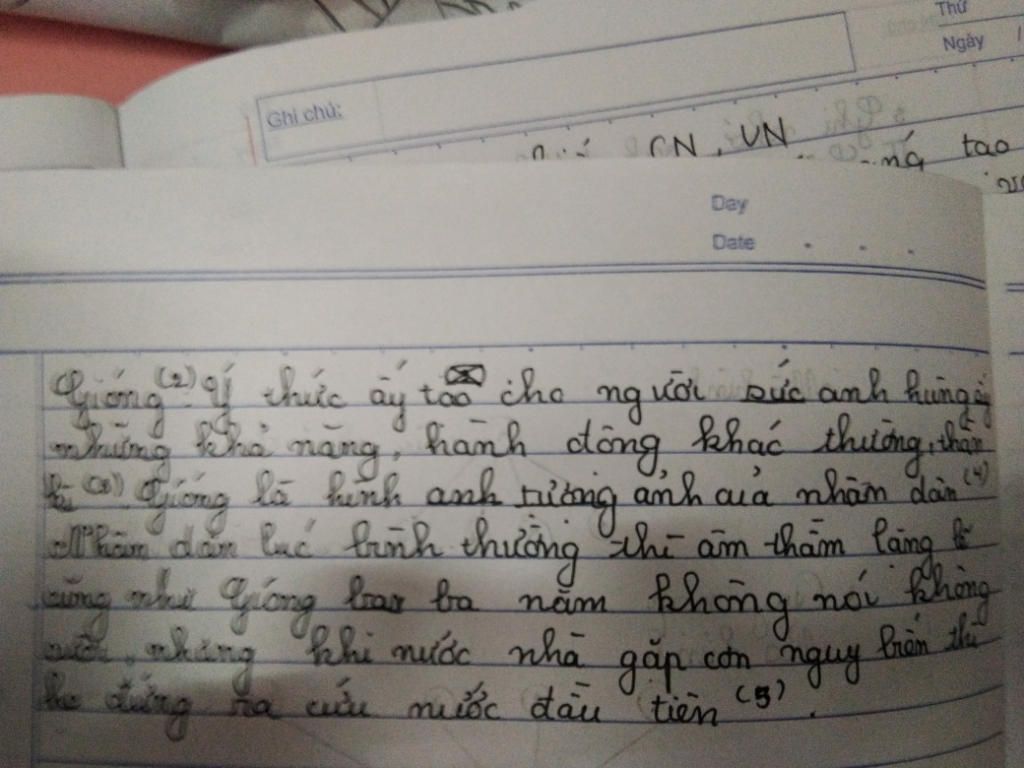 Thứ
Ghi chú:
Ngày /
CN, VN
tao
Day
Date . . .
Gióng (2). Ý thức ấy tạo cho người sức anh hùng ấy
những khả năng, hành động khác thường, thần
kì (3). Gióng là hình anh tượng ảnh của nhân dân (4)
Nhân dân lúc bình thường thì âm thầm lặng lẽ
cũng như Gióng ba năm không nói không
cười, nhưng khi nước nhà gặp cơn nguy biến thì
họ đứng ra cứu nước đầu tiên (5).